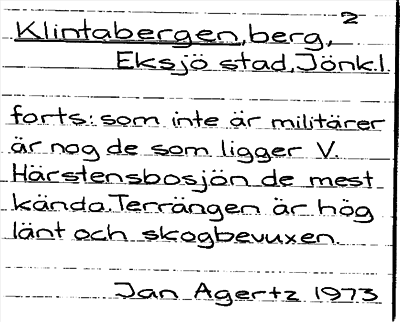 2
Klintabergen, berg,
Eksjö stad, Jönk.l.
forts: som inte är militärer
är nog de som ligger V.
Härstensbosjön de mest
kända. Terrängen är hög
länt och skogbevuxen.
Jan Agertz 1973